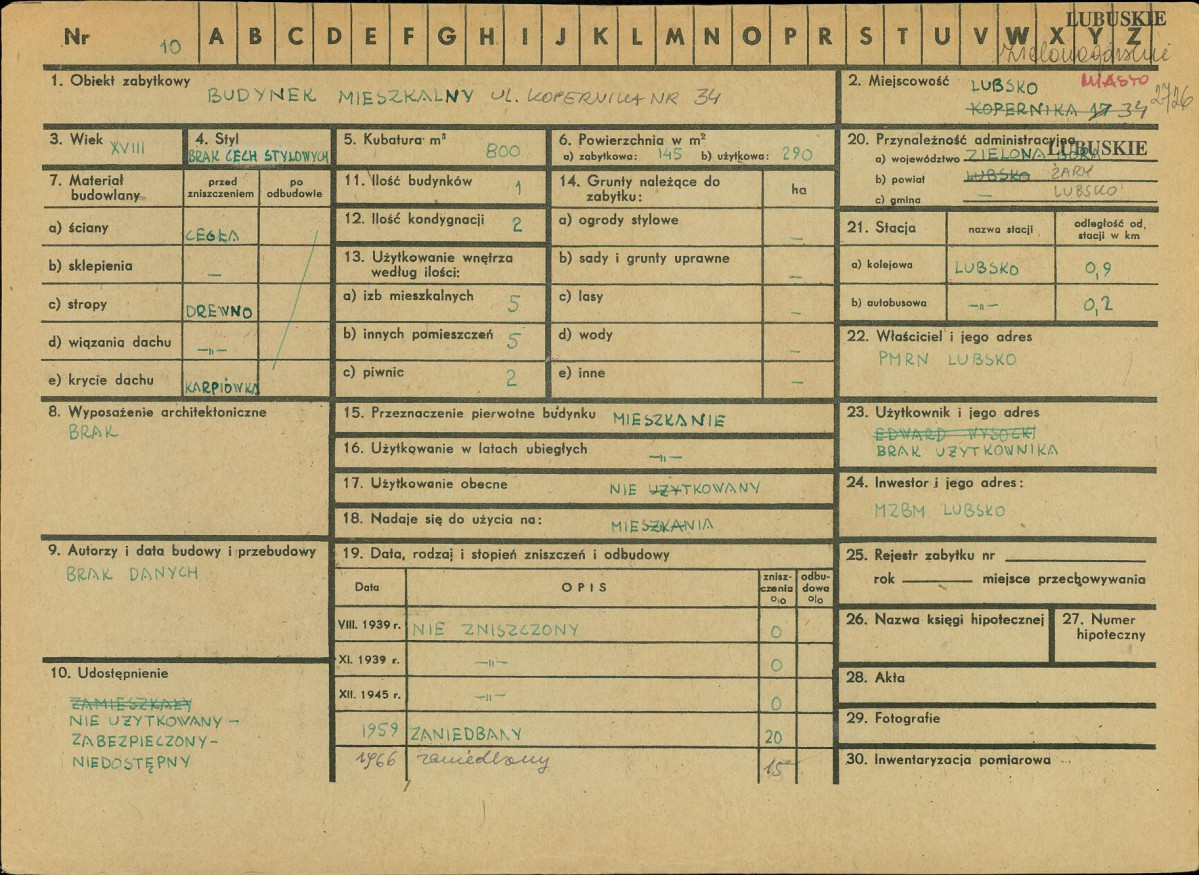 LUBUSKIE
Nr 10 A B C D E F G H I J K L M N O P R S T U V W X Y Z
zielonogórskie
1. Obiekt zabytkowy
BUDYNEK MIESZKALNY UL. KOPERNIKA NR 34
2. Miejscowość LUBSKO MIASTO
KOPERNIKA 17 34
2726
3. Wiek XVIII
4. Styl
BRAK CECH STYLOWYCH
5. Kubatura m³
800
6. Powierzchnia w m²
a) zabytkowa: 145 b) użytkowa: 290
20. Przynależność administracyjna
LUBUSKIE
a) województwo ZIELONA GÓRA
b) powiat LUBSKO ŻARY
c) gmina — LUBSKO
7. Materiał budowlany
przed zniszczeniem
po odbudowie
a) ściany CEGŁA
b) sklepienia —
c) stropy DREWNO
d) wiązania dachu —„—
e) krycie dachu KARPIÓWKA
11. Ilość budynków 1
12. Ilość kondygnacji 2
13. Użytkowanie wnętrza
według ilości:
a) izb mieszkalnych 5
b) innych pomieszczeń 5
c) piwnic 2
14. Grunty należące do
zabytku: ha
a) ogrody stylowe —
b) sady i grunty uprawne —
c) lasy —
d) wody —
e) inne —
21. Stacja nazwa stacji odległość od stacji w km
a) kolejowa LUBSKO 0,9
b) autobusowa —„— 0,2
22. Właściciel i jego adres
PMRN LUBSKO
8. Wyposażenie architektoniczne
BRAK
15. Przeznaczenie pierwotne budynku MIESZKANIE
16. Użytkowanie w latach ubiegłych —„—
17. Użytkowanie obecne NIE UŻYTKOWANY
18. Nadaje się do użycia na: MIESZKANIA
23. Użytkownik i jego adres
EDWARD WYSOCKI
BRAK UŻYTKOWNIKA
24. Inwestor i jego adres:
MZBM LUBSKO
9. Autorzy i data budowy i przebudowy
BRAK DANYCH
19. Data, rodzaj i stopień zniszczeń i odbudowy
Data OPIS zniszczenia % odbudowa %
VIII. 1939 r. NIE ZNISZCZONY 0
XI. 1939 r. —„— 0
XII. 1945 r. —„— 0
1959 ZANIEDBANY 20
1966 zaniedbany 15
25. Rejestr zabytku nr
rok miejsce przechowywania
26. Nazwa księgi hipotecznej
27. Numer hipoteczny
28. Akta
29. Fotografie
30. Inwentaryzacja pomiarowa
10. Udostępnienie
ZAMIESZKAŁY
NIE UŻYTKOWANY –
ZABEZPIECZONY–
NIEDOSTĘPNY